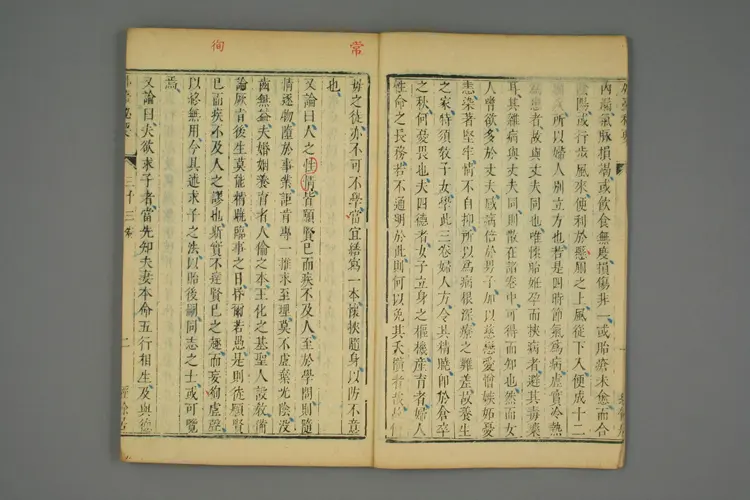 常
外臺秘要
內臟氣脈損竭或飲食無度損傷非一或胎瘡未愈而合
陰陽或行步風來便利於懸廁之上風從下入便成十二
所以婦人別立方也若是四時節氣為病虛實冷熱
為患者故與丈夫同也唯懷胎姙孕而挾病者避其毒藥
耳其雜病與丈夫同則散在諸卷中可得而知也然而女
人嗜欲多於丈夫感病倍於男子加以慈戀愛憎嫉妬憂
恚染著堅牢情不自抑所以為病根深療之難差故養生
之家特須教子女學此三卷婦人方令其精曉即於倉卒
之秋何憂畏也夫四德者女子立身之樞機產育者婦人
性命之長務若不通明於此則何以免其夭橫者故
徇
母之徒亦不可不學當宜繕寫一本懷挾隨身以防不意
也
又論曰人之性情皆願賢己而疾不及人至於學問則隨
情逐物墮於事業詎肯專一推求至理莫不虛棄光陰沒
齒無益夫婚姻養育者人倫之本王化之基聖人設教備
論厥旨後生莫能精曉臨事之日昏爾若愚是則徒願賢
己而疾不及人之謬也斯實不達賢己之趣而妄徇虛聲
以終無用今具述求子之法以貽後嗣同志之士或可覽
焉
又論曰夫欲求子者當先知夫妻本命五行相生及與德
外臺秘要 三十三卷 二 經餘居